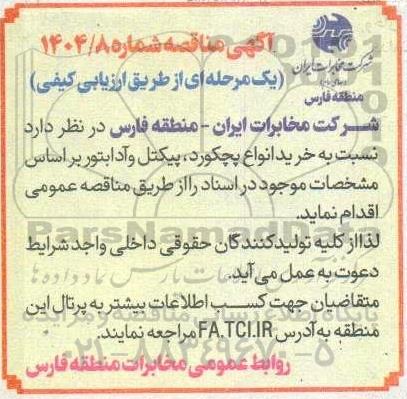 آگهی مناقصه شماره ۱۴۰۴/۸
(یک مرحله ای از طریق ارزیابی کیفی)
شرکت مخابرات ایران
منطقه فارس
شرکت مخابرات ایران - منطقه فارس در نظر دارد
نسبت به خرید انواع پچکورد، پیکتل و آدابتور بر اساس
مشخصات موجود در اسناد را از طریق مناقصه عمومی
اقدام نماید.
لذا از کلیه تولیدکنندگان حقوقی داخلی واجد شرایط
دعوت به عمل می آید.
متقاضیان جهت کسب اطلاعات بیشتر به پرتال این
منطقه به آدرس FA.TCI.IR مراجعه نمایند.
روابط عمومی مخابرات منطقه فارس
ParsNamadData
۰۲۱-۸۸۳۴۹۶۷۰-۵